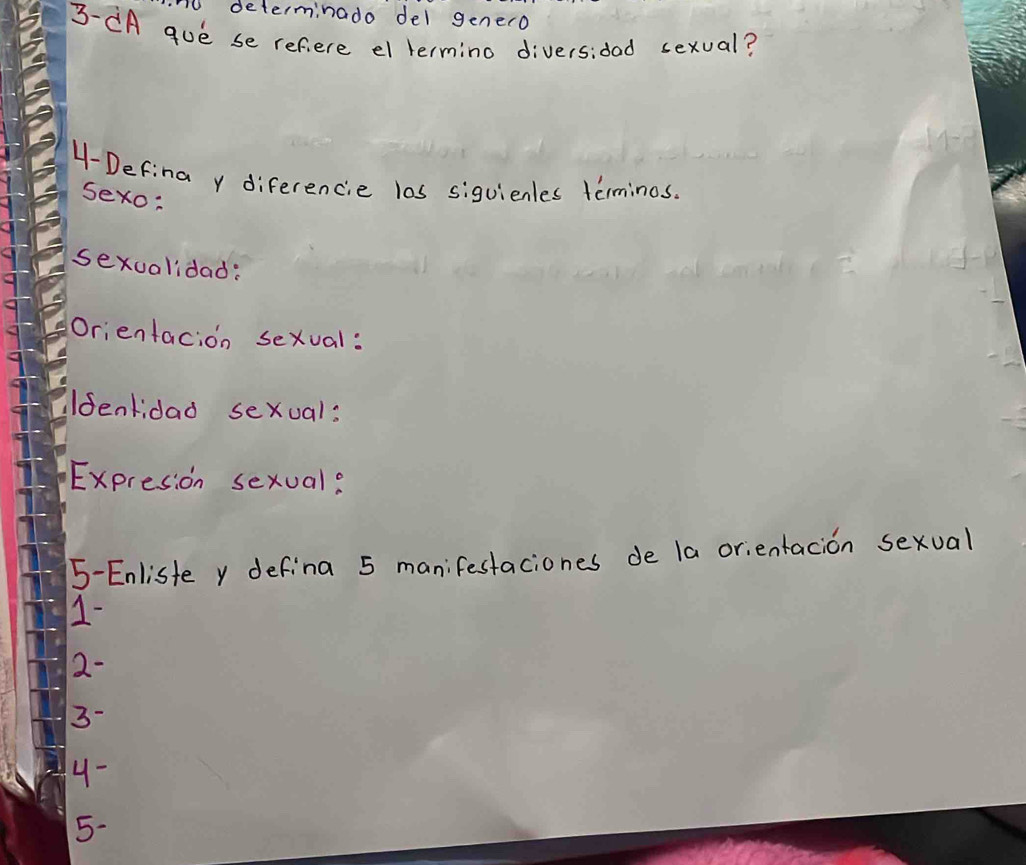 determinado del genero
3-¿A qué se refiere el termino diversidad sexual?
4-Defina y diferencie los siguientes términos.
Sexo:
sexualidad:
Orientación sexual:
Identidad sexual:
Expresión sexual:
5-Enliste y defina 5 manifestaciones de la orientación sexual
1-
2-
3-
4-
5-